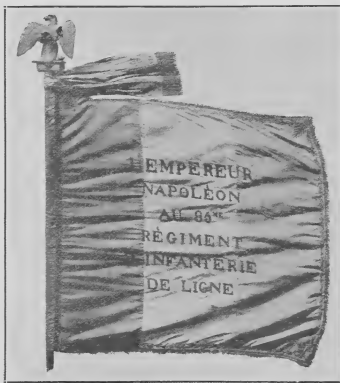 L'EMPEREUR
NAPOLÉON
AU 86ME
RÉGIMENT
D'INFANTERIE
DE LIGNE